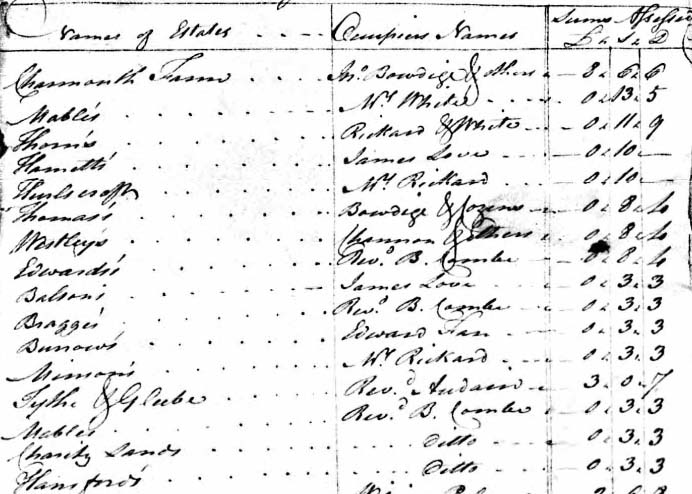 Names of Estates Occupiers Names Sums Assessed
£ s D
Charmouth Farm Jno. Bowdige & others 8 6 6
Mables Mr White 0 13 5
Thorn's Rickard & White 0 11 9
Hametts James Love 0 10 —
Mr Rickard 0 10 —
Thomas's Bowdige & Cozens 0 8 4
Westley's Channon & Others 0 8 4
Edwards's Revd B. Combe 0 8 4
Balson's James Love 0 3 3
Bragge's Revd B. Combe 0 3 3
Burrows' Edward 0 3 3
Mr Rickard 0 3 3
Tythe & Glebe Revd Audain 3 0 7
Mables Revd B. Combe 0 3 3
Charity Lands Ditto 0 3 3
Hansford's Ditto 0 3 3